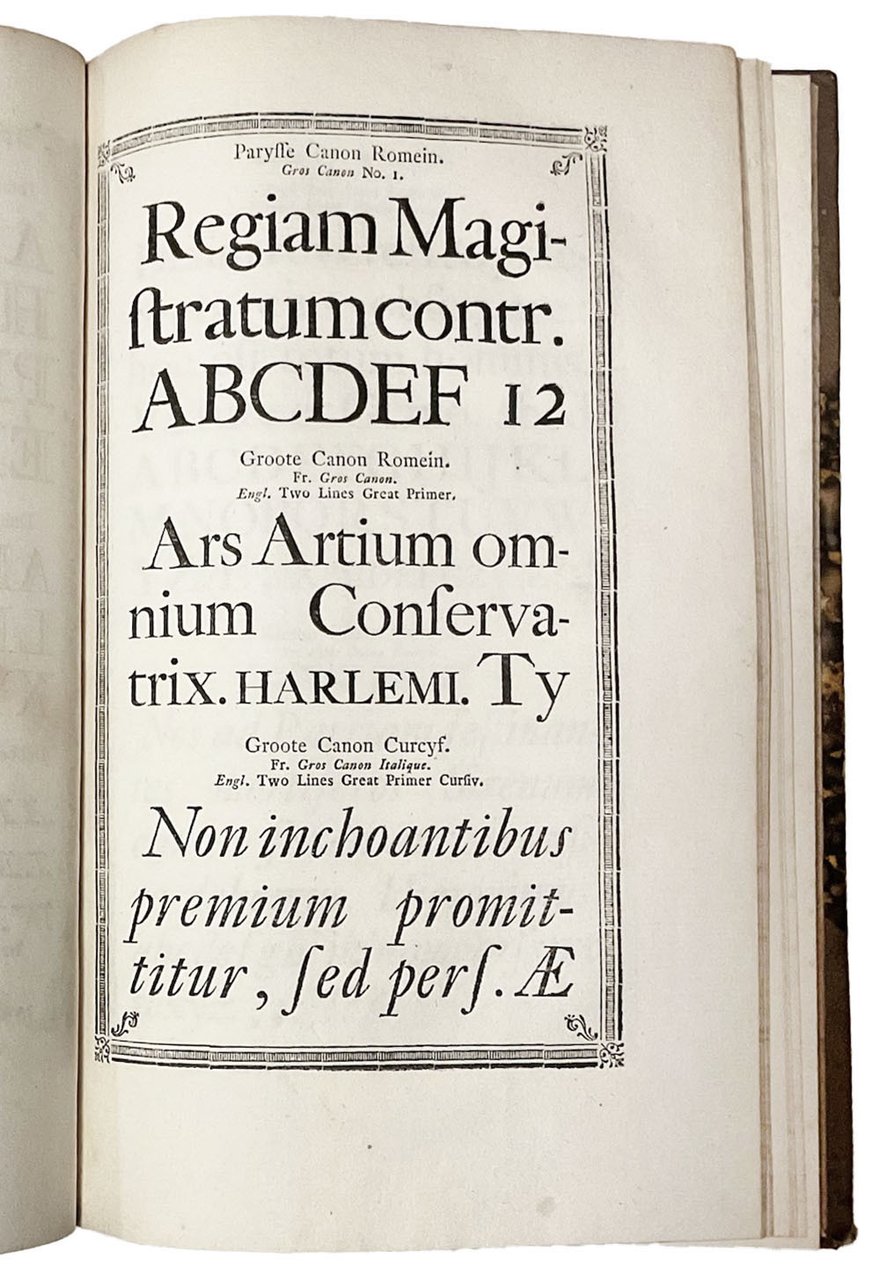 Parysſe Canon Romein.
Gros Canon No. 1.
Regiam Magi-
ſtratum contr.
ABCDEF 12
Groote Canon Romein.
Fr. Gros Canon.
Engl. Two Lines Great Primer.
Ars Artium om-
nium Conſerva-
trix. HARLEMI. Ty
Groote Canon Curcyf.
Fr. Gros Canon Italique.
Engl. Two Lines Great Primer Curſiv.
Non inchoantibus
premium promit-
titur, ſed perſ. Æ